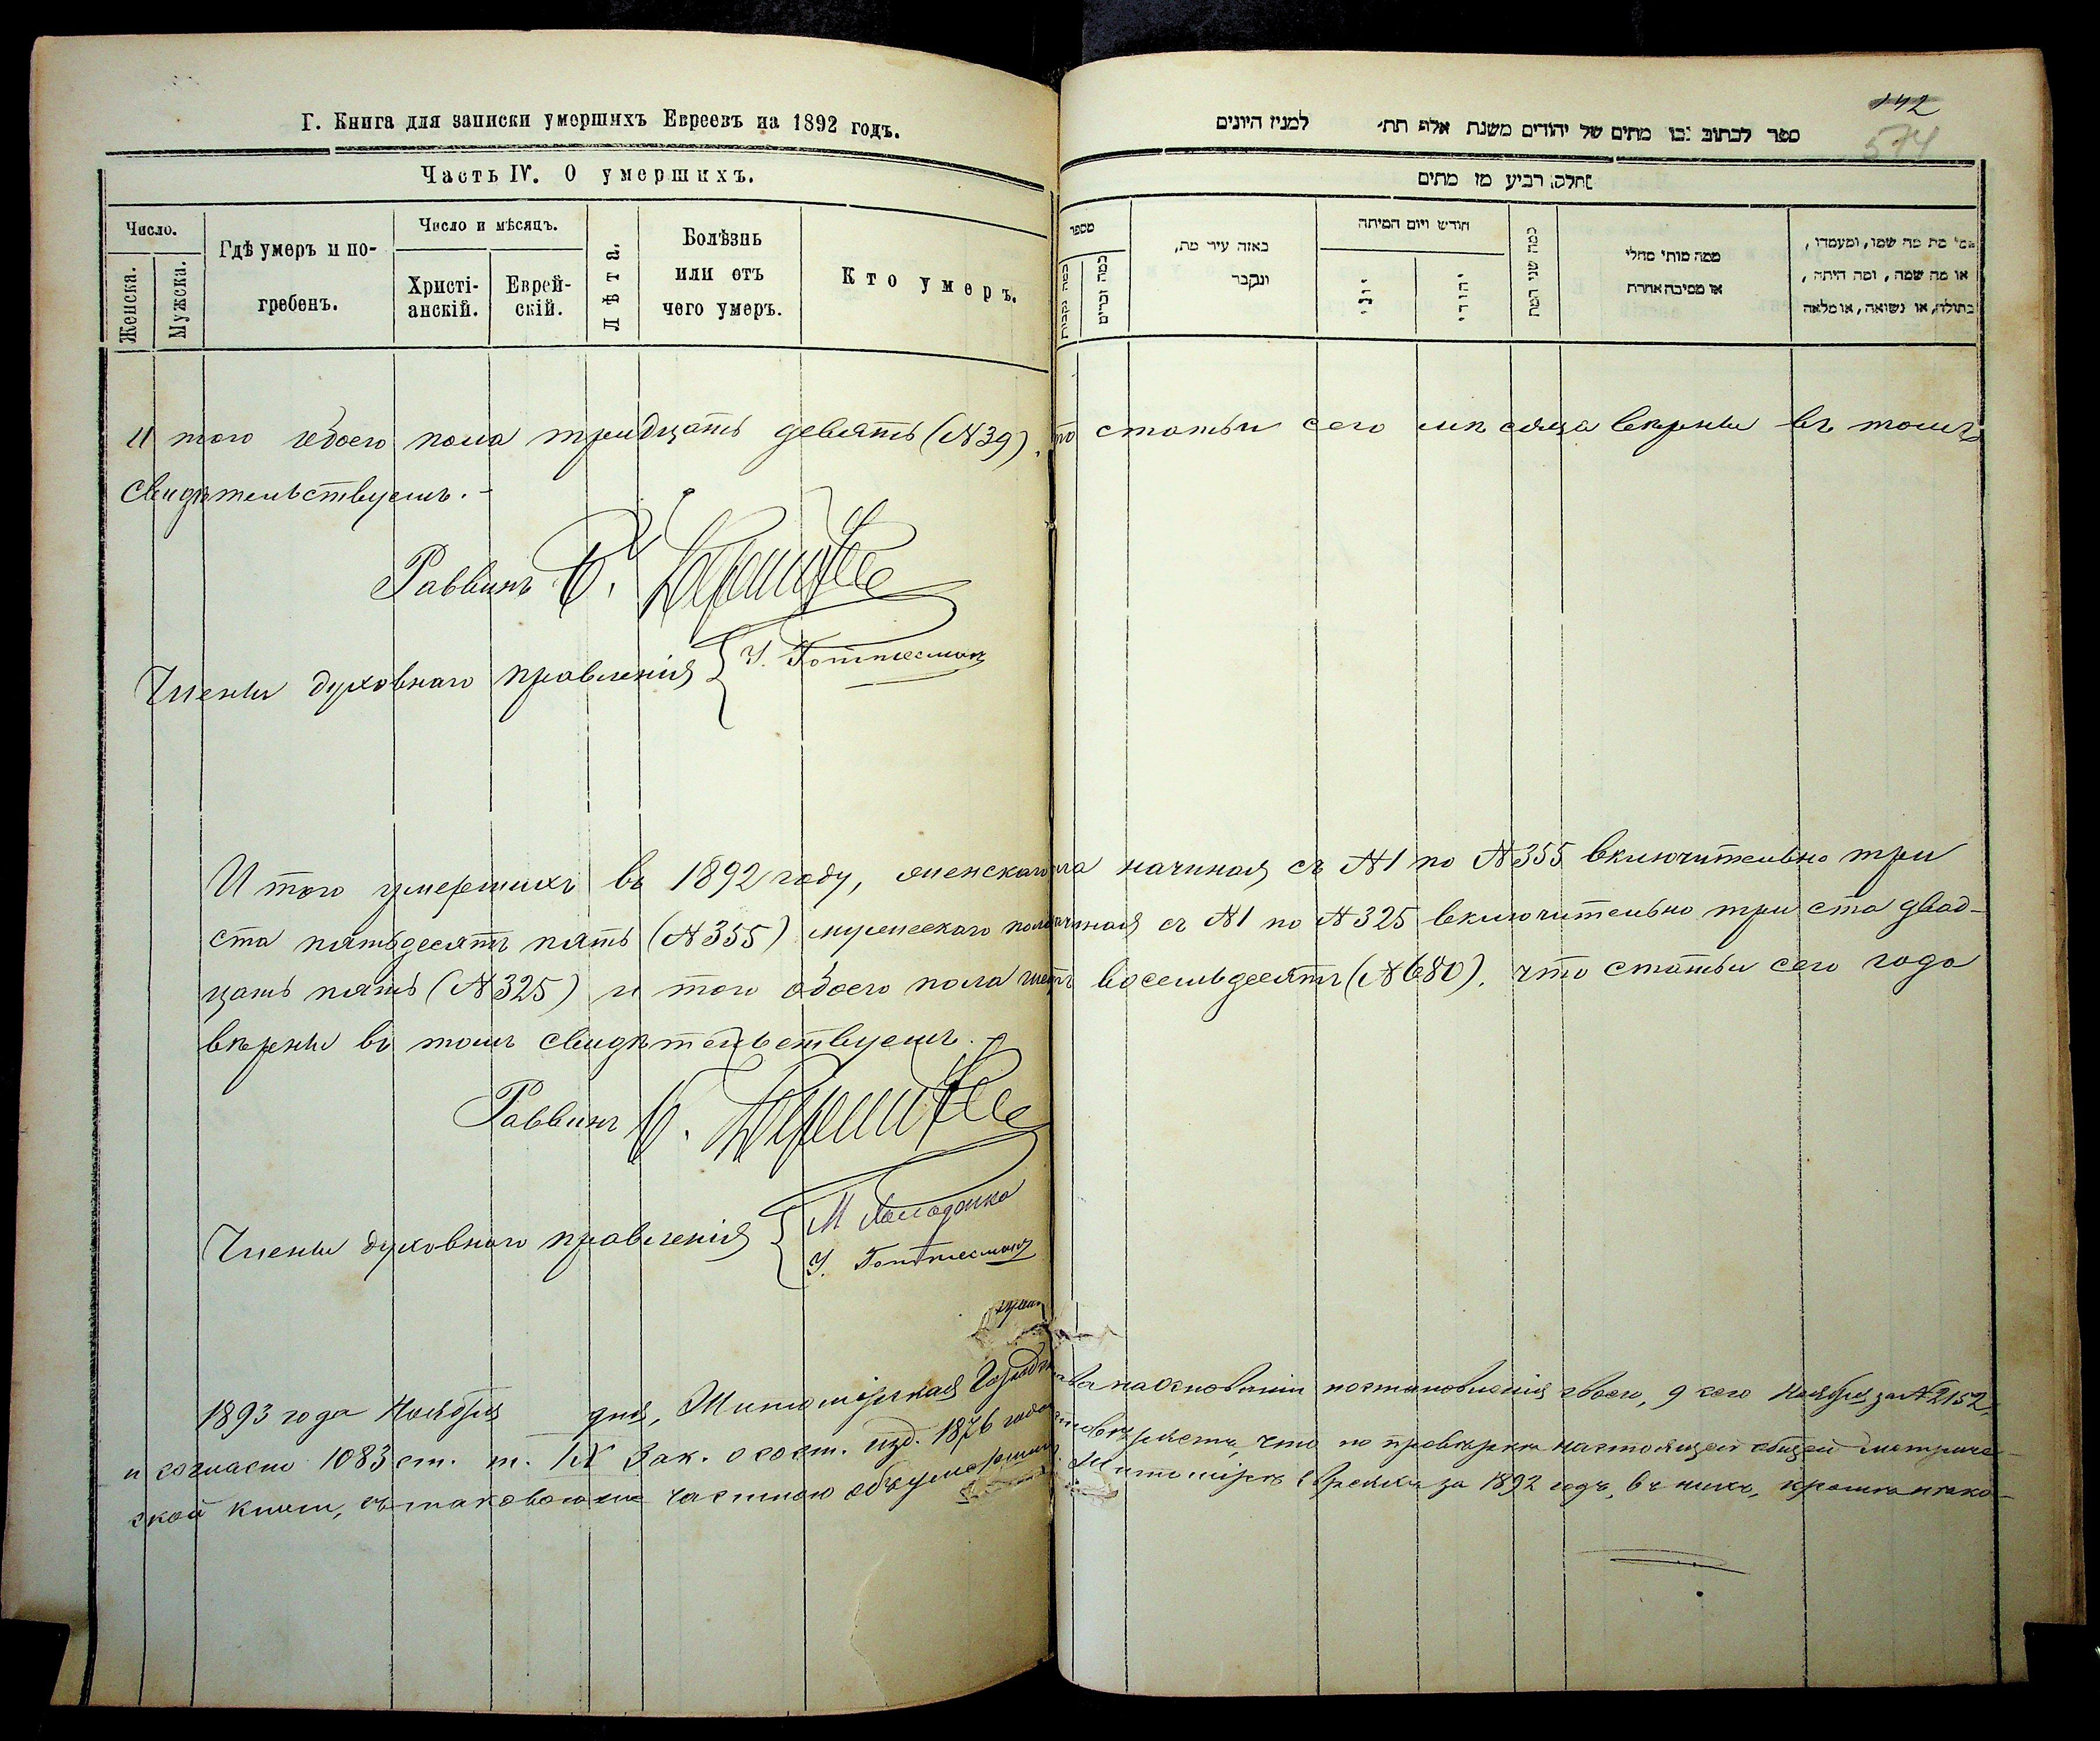 Г. Книга для записки умершихъ Евреевъ на 1892 годъ.
Часть IV. О умершихъ.
Число.
Женска.
Мужска.
Гдѣ умеръ и по-
гребенъ.
Число и мѣсяцъ.
Христі-
анскій.
Еврей-
скій.
Лѣта.
Болѣзнь
или отъ
чего умеръ.
Кто умеръ.
142
574
ספר לכתוב בו מתים של יהודים משנת אלף תת׳ למניז היונים
חלק רביע מז מתים
מספר
כמה נקבות
כמה זכרים
באזה עיר מת,
ונקבר
חודש ויום המיתה
יוני
יהודי
כמה שני המת
ממה מותי מחלי
או מסיבה אחרת
מת מה שמו, ומעמדו,
או מה שמה, ומה היתה,
בתולה, או נשואה, או מלאה
И того обоего пола тридцать девять (№ 39). то статьи сего мѣсяца вѣрны въ томъ
свидѣтельствуемъ.-
Раввинъ
Члены духовнаго правленія { У. Готтесманъ
И того умершихъ въ 1892 году, женскаго ла начиная съ №1 по №355 включительно три
ста пятьдесятъ пять (№355) мужескаго пола чиная съ №1 по №325 включительно три ста двад-
цать пять (№325) и того обоего пола шесть восемьдесятъ (№680). что статьи сего года
вѣрны въ томъ свидѣтельствуемъ.-
Раввинъ
Члены духовнаго правленія { М
У. Готтесманъ
1893 года Ноября дня, Житомірская Городская на основаніи постановленія своего, 9 сего Ноября за №2152,
и согласно 1083 ст. т. IX Зак. о сост. изд. 1876 года что по провѣркѣ настоящей общей метриче-
ской книги, съ таковою же частною объ умершихъ Житомірѣ Евреяхъ за 1892 годъ, въ нихъ, кромѣ